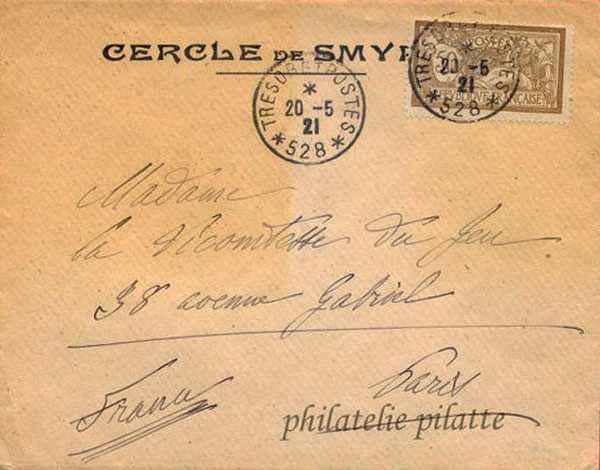 CERCLE DE SMYR
TRESOR ET POSTES
*
20 -5
21
* 528 *
TRESOR POSTES
*
20 -5
21
* 528 *
POSTES
REPUBLIQUE FRANÇAISE
Madame
la Vicomtesse du Jeu
38 avenue Gabriel
Paris
France
philatelie pilatte